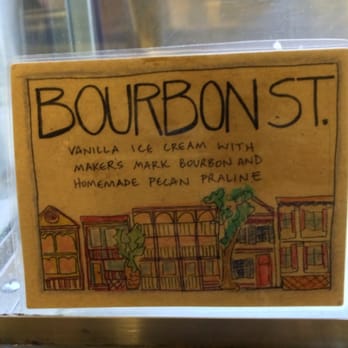 BOURBON ST.
VANILLA ICE CREAM WITH
MAKER'S MARK BOURBON AND
HOMEMADE PECAN PRALINE